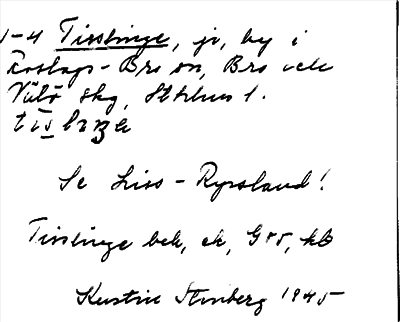 1-4 Tisslinge, jr, by i
Roslags-Bro sn, Bro och
Vätö skg, Sthlms l.
Se Liss-Ryssland!
Tisslinge bek, ek, G35, kb
Kerstin Stenberg 1945